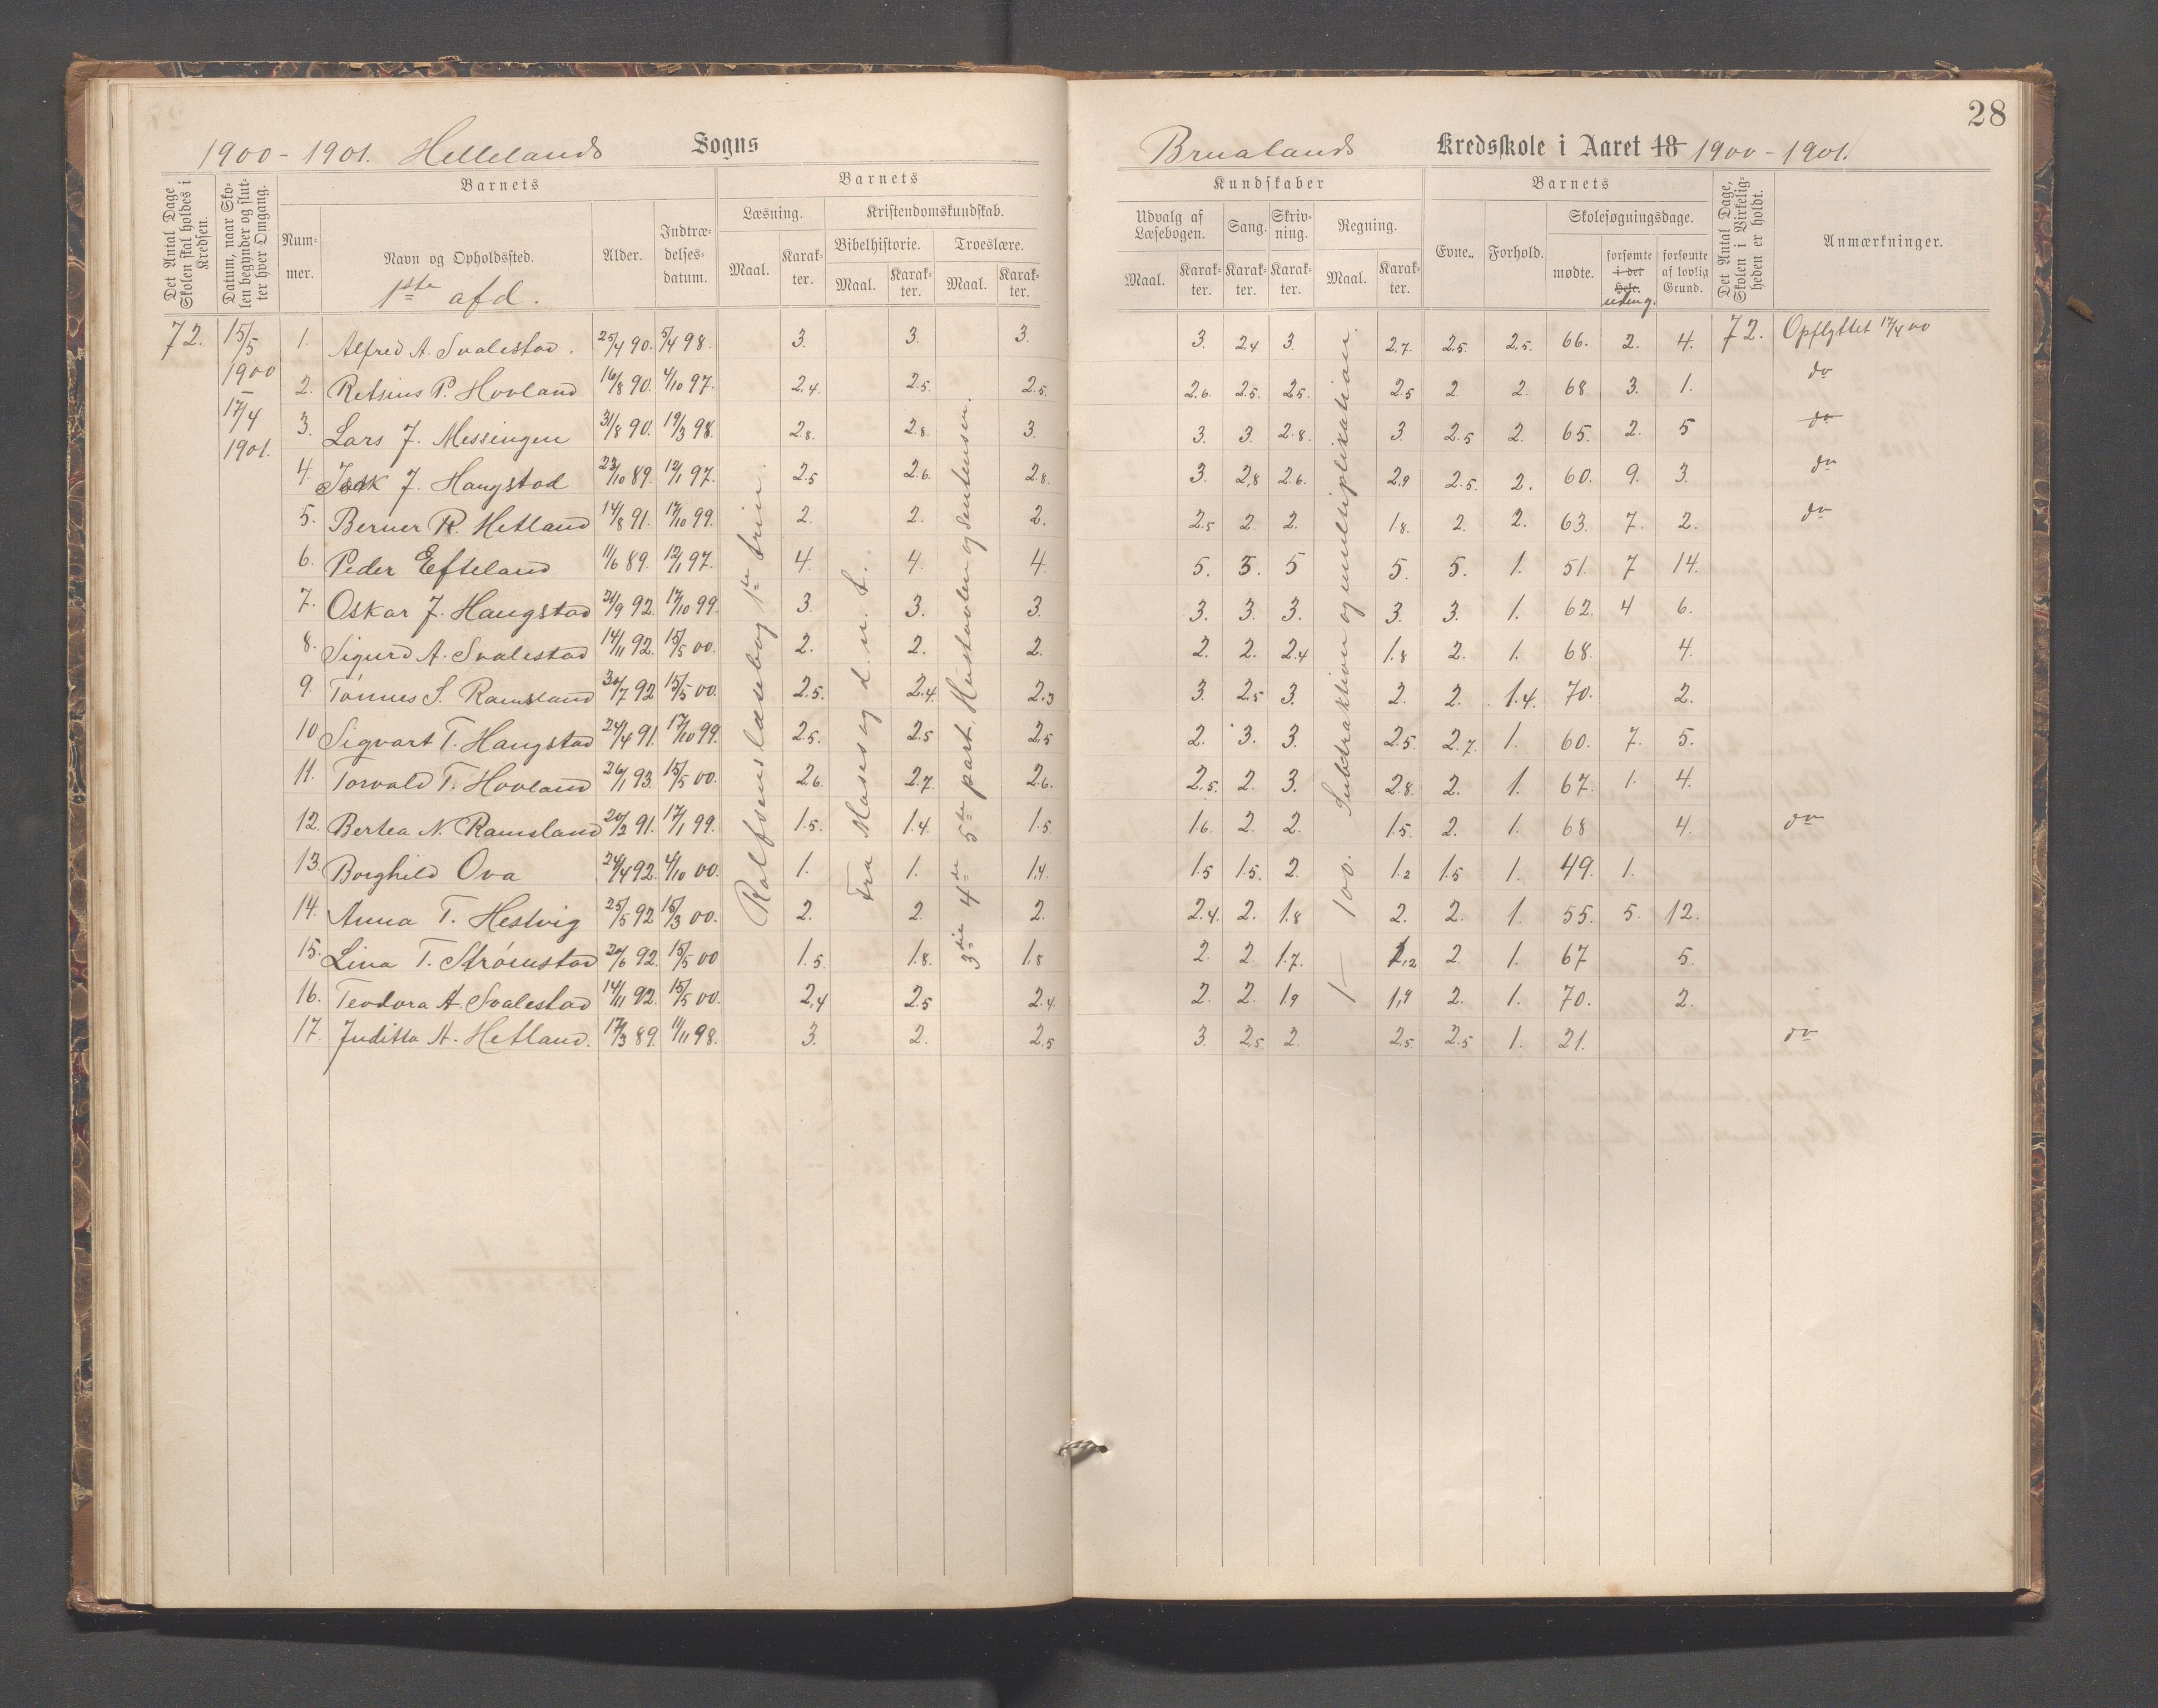 28
1900-1901. Hellelands Sogns Brualands Kredsskole i Aaret 18 1900-1901.
Det Antal Dage Skolen skal holdes i Kredsen.
Datum, naar Skolen begynder og slutter hver Omgang.
Barnets
Nummer.
Navn og Opholdssted.
1ste afd.
Alder.
Indtrædelsesdatum.
Barnets
Læsning.
Maal. Karakter.
Kristendomskundskab.
Bibelhistorie. Troeslære.
Maal. Karakter. Maal. Karakter.
Kundskaber
Udvalg af Læsebogen. Sang. Skrivning. Regning.
Maal. Karakter. Karakter. Karakter. Maal. Karakter.
Barnets
Evne. Forhold.
Skolesøgningsdage.
mødte. forsømte i det Hele. uden g. forsømte af lovlig Grund.
Det Antal Dage, Skolen i Virkeligheden er holdt.
Anmærkninger.
72. 15/5 1900 – 17/4 1901.
Rolfsens læsebog 1ste trin.
Fra Moses og d. u. t.
3die 4de 5te part. Hustavlen og sentensen.
1–100. Subtraktion og multiplikation.
1. Alfred A. Svalestad. 25/4 90. 5/4 98. 3. 3. 3. 3. 2,4 3. 2,7. 2,5. 2,5. 66. 2. 4. 72. Opflyttet 17/4 00
2. Retsius P. Hovland 16/8 90. 4/10 97. 2,4. 2,5. 2,5. 2,6. 2,5. 2,5. 2,5 2. 2. 68 3. 1. do
3. Lars J. Messingen 31/8 90. 19/3 98. 2,8. 2,8. 3. 3. 3. 2,8. 3. 2,5 2. 65. 2. 5 do
4. J. Haugstad 23/10 89. 12/1 97. 2,5 2,6. 2,8. 3. 2,8 2,6. 2,9 2,5. 2. 60. 9. 3. do
5. Berner R. Hetland 14/8 91. 17/10 99. 2. 2. 2. 2,5 2. 2. 1,8. 2. 2. 63. 7. 2. do
6. Peder Efteland 11/6 89. 12/1 97. 4. 4. 4. 5. 3. 5 5. 5. 1. 51. 7 14.
7. Oskar J. Haugstad 21/9 92. 17/10 99. 3. 3. 3. 3. 3. 3. 3. 3. 1. 62. 4 6.
8. Sigurd A. Svalestad 14/11 92. 15/5 00. 2. 2. 2. 2. 2. 2,4 1,8 2. 1. 68. 4.
9. Tønnes S. Ramsland 30/7 92 15/5 00. 2,5. 2,4. 2,3 3. 2,5 3. 2. 2. 1,4. 70. 2.
10 Sigvart T. Haugstad 24/4 91. 17/10 99. 2,5. 2,5 2,5 2. 3. 3. 2,5. 2,7. 1. 60. 7. 5.
11. Torvald T. Hovland 26/1 93. 15/5 00. 2,6. 2,7. 2,6. 2,5. 2. 3. 2,8. 2. 1. 67. 1. 4.
12. Bertea N. Ramsland 20/2 91. 17/1 99. 1,5. 1,4. 1,5. 1,6. 2. 2. 1,5. 2. 1. 68 4. do
13. Borghild Ova 24/4 92. 4/10 00. 1. 1. 1,4. 1,5 1,5. 2. 1,2 1,5 1. 49. 1.
14. Anna T. Hestvig 25/5 92 15/3 00. 2. 2. 2. 2,4. 2. 1,8 2. 2. 1. 55. 5. 12.
15. Lina T. Strømstad 20/6 92. 15/5 00 1,5 1,8. 1,8 2. 2. 1,7. 1,2 2. 1. 67 5.
16. Teodora A. Svalestad 14/11 92. 15/5 00. 2,4 2,5 2,4. 2. 2. 1,9 1,9 2. 1. 70. 2.
17. Juditta A. Hetland. 17/3 89. 11/11 98. 3. 2. 2,5. 3. 2,5. 2. 2,5. 2,5 1. 21. do